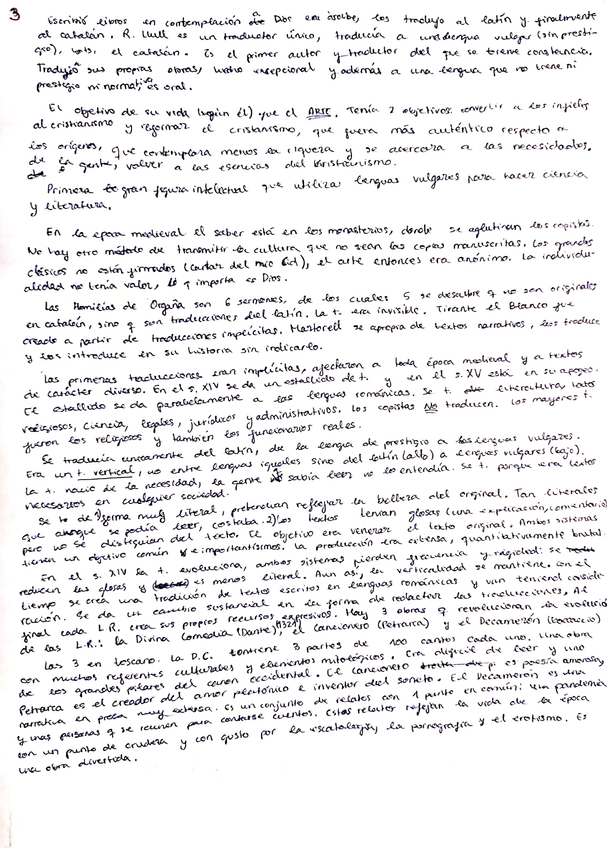 3
Escribió libros en contemplación a Dios en árabe, los tradujo al latín y finalmente
al catalán. R. Llull es un traductor único, traducía a una lengua vulgar (sin presti-
gio), el catalán. Es el primer autor y traductor del que se tiene constancia.
Tradujo sus propias obras, hecho excepcional y además a una lengua que no tiene ni
prestigio ni normativa es oral.
El objetivo de su vida (según él) fue el ARTE. Tenía 2 objetivos: convertir a los infieles
al cristianismo y reformar el cristianismo, que fuera más auténtico respecto a
los orígenes, que contemplara menos la riqueza y se acercara a las necesidades
de la gente, volver a las esencias del cristianismo.
Primera gran figura intelectual que utiliza lenguas vulgares para hacer ciencia
y literatura.
En la época medieval el saber está en los monasterios, donde se aglutinan los copistas.
No hay otro método de transmitir la cultura que no sean las copias manuscritas. Los grandes
clásicos no están firmados (cantar del mio Cid), el arte entonces era anónimo. La individu-
alidad no tenía valor, lo q importa es Dios.
Las Homilías de Organà son 6 sermones, de los cuales 5 se descubre q no son originales
en catalán, sino q son traducciones del latín. La t. era invisible. Tirante el Blanco fue
creado a partir de traducciones implícitas. Martorell se apropia de textos narrativos, los traduce
y los introduce en su historia sin indicarlo.
Las primeras traducciones eran implícitas, afectaron a toda época medieval y a textos
de carácter diverso. En el s. XIV se da un estallido de t. y en el s. XV está en su apogeo.
El estallido se da paralelamente a las lenguas románicas. Se t. literatura, textos
religiosos, ciencia, legales, jurídicos y administrativos. Los copistas NO traducen. Los mayores t.
fueron los religiosos y también los funcionarios reales.
Se traducía únicamente del latín, de la lengua de prestigio a las lenguas vulgares.
Era un t. vertical, no entre lenguas iguales sino del latín (alto) a lenguas vulgares (bajo).
La t. nació de la necesidad, la gente q sabía leer no lo entendía. Se t. porque eran textos
necesarios en cualquier sociedad.
Se t. de 1) forma muy literal, pretendían reflejar la belleza del original. Tan literales
que aunque se podía leer, costaba. 2) los textos llevan glosas (una explicación, comentario)
pero no se distinguían del texto. El objetivo era venerar el texto original. Ambos sistemas
tienen un objetivo común y e importantísimos. La producción era extensa, quantitativamente brutal.
En el s. XIV la t. evoluciona, ambos sistemas pierden frecuencia y rigidad: se
reducen las glosas y es menos literal. Aun así, la verticalidad se mantiene. Con el
tiempo se crea una tradición de textos escritos en lenguas románicas y van teniend conside-
ración. Se da un cambio sustancial en la forma de redactar las traducciones. Al
final cada L.R. crea sus propios recursos expresivos. Hay 3 obras q revolucionan la escritura
de las L.R.: la Divina Comedia (Dante) 1321, el Cancionero (Petrarca) y el Decamerón (Boccaccio)
Las 3 en toscano. La D.C. contiene 3 partes de 100 cantos cada uno. Una obra
con muchos referentes culturales y elementos mitológicos. Era difícil de leer y uno
de los grandes pilares del canon occidental. El cancionero es poesía amorosa,
Petrarca es el creador del amor platónico e inventor del soneto. El Decamerón es una
narrativa en prosa muy extensa. Es un conjunto de relatos con 1 punto en común: una pandemia
y unas personas q se reunen para contarse cuentos. Estos relatos reflejan la vida de la época
con un punto de crudeza y con gusto por la escatología, la pornografía y el erotismo. Es
una obra divertida.